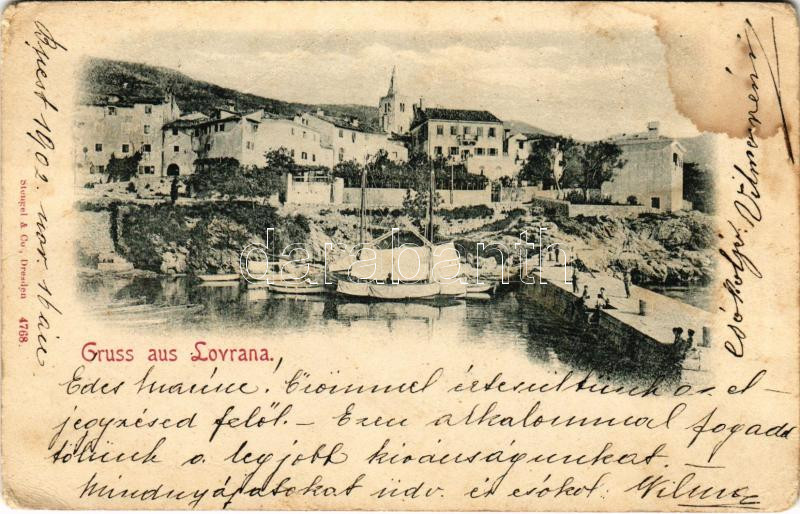 Bpest 1902. nov. 16án
Stengel & Co., Dresden 4768.
darabanth
Gruss aus Lovrana.
Edes Marine! Örömmel értesültünk az el-
jegyzésed felől. – Ezen alkalommal fogadd
tőlünk a legjobb kivánságunkat. –
Mindnyájatokat üdv. és csókol: Wilma
csókolja